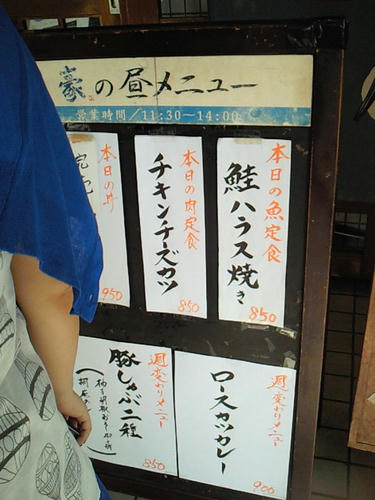 豪の昼メニュー
営業時間／11:30～14:00
本日の魚定食
鮭ハラス焼き
850
本日の肉定食
チキンチーズカツ
850
本日の丼
950
週変わりメニュー
ロースカツカレー
900
週変わりメニュー
豚しゃぶ二種
850